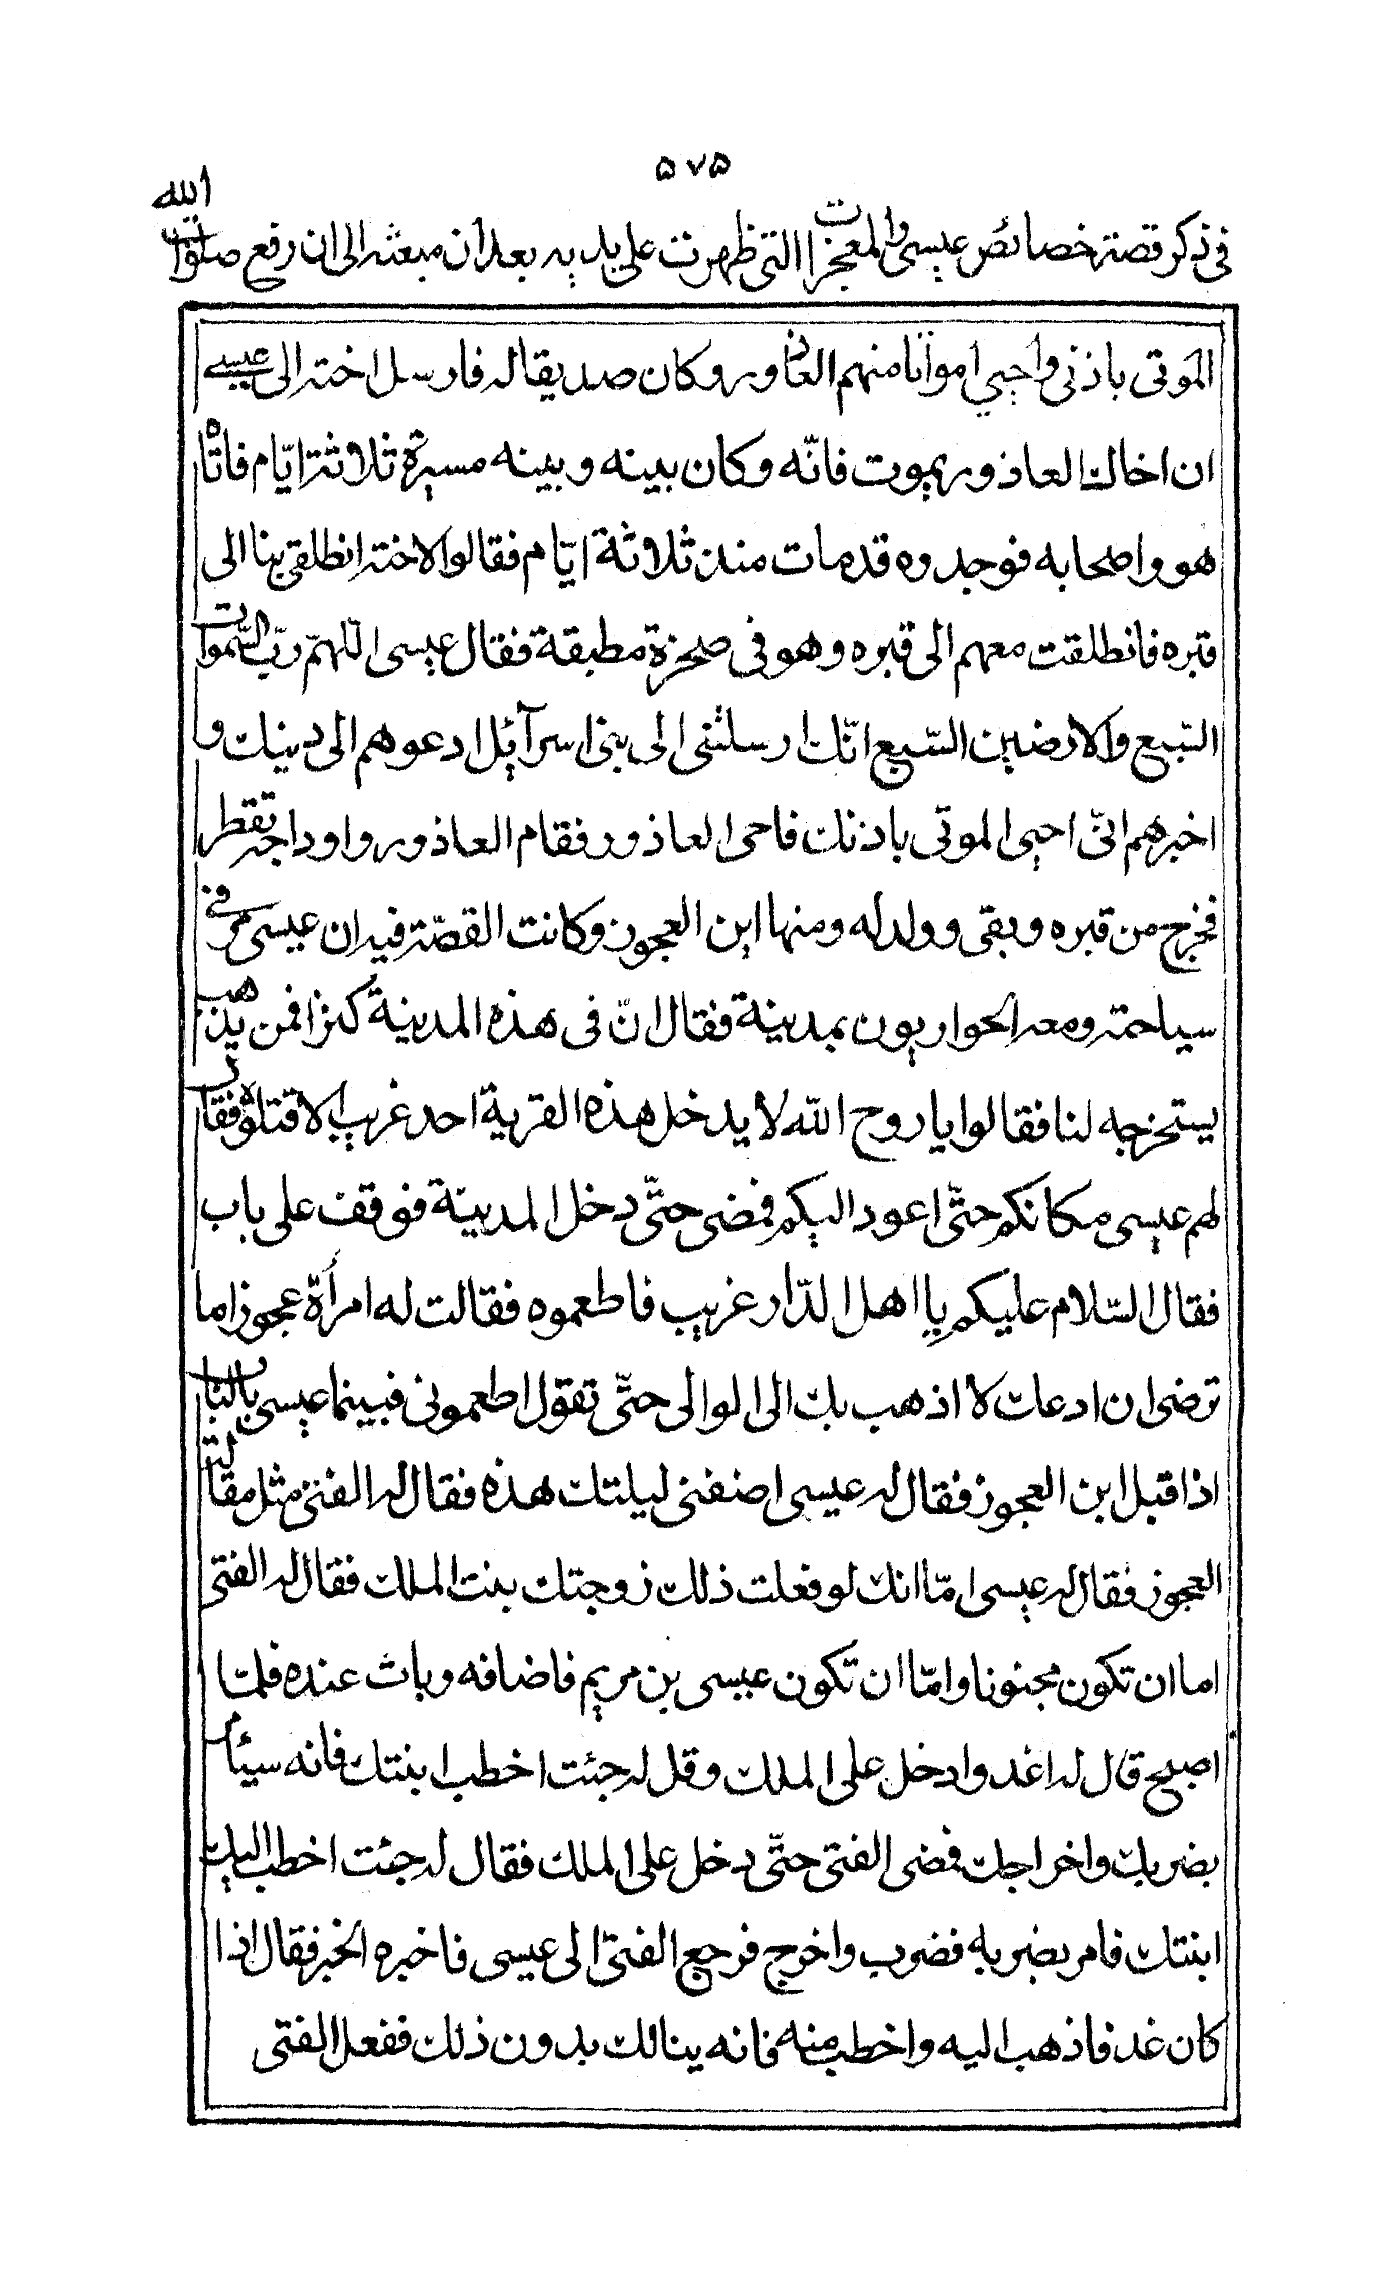 ۵۷۵
في ذكر قصة خصائص عيسى والمعجزات التي ظهرت على يديه بعد ان مبعثه الى ان رفع صلوات الله
الموتى باذني واحيي امواتا منهم العاذور وكان صديقا له فارسل اخته الى عيسى
ان اخاك العاذور يموت فاتّه وكان بينه وبينه مسيرة ثلاثة ايّام فاتاه
هو واصحابه فوجدوه قدمات منذ ثلاثة ايّام فقالوا لاخته انطلقى بنا الى
قبره فانطلقت معهم الى قبره وهو فى صخرة مطبقة فقال عيسى اللّهمّ ربّ السّموات
السّبع والارضين السّبع انّك ارسلتنى الى بنى اسرآئيل ادعوهم الى دينك و
اخبرهم انّى احيى الموتى باذنك فاحى العاذور فقام العاذور واوداجه تقطر
فخرج من قبره وبقى وولد له ومنها ابن العجوز وكانت القصّة فيه ان عيسى مرّ فى
سياحته ومعه الحواريون بمدينة فقال انّ فى هذه المدينة كنزا فمن يذهب
يستخرجه لنا فقالوا يا روح اللّه لا يدخل هذه القرية احد غريب الا قتلوه فقال
لهم عيسى مكانكم حتّى اعود اليكم فمضى حتّى دخل المدينة فوقف على باب
فقال السّلام عليكم يا اهل الدّار غريب فاطعموه فقالت له امرأة عجوز اما
ترضى ان ادعك لا اذهب بك الى الوالى حتّى تقول اطعمونى فبينما عيسى بالباب
اذ اقبل ابن العجوز فقال له عيسى اضفنى ليلتك هذه فقال له الفتى مثل مقالة
العجوز فقال له عيسى امّا انك لو فعلت ذلك زوجتك بنت الملك فقال له الفتى
اما ان تكون مجنونا وامّا ان تكون عيسى بن مريم فاضافه وبات عنده فلمّا
اصبح قال له اغد وادخل على الملك وقل له جئت اخطب ابنتك فانه سيأمر
بضربك واخراجك فمضى الفتى حتّى دخل على الملك فقال له جئت اخطب اليك
ابنتك فامر بضربه فضرب واخرج فرجع الفتى الى عيسى فاخبره الخبر فقال اذا
كان غد فاذهب اليه واخطب منه فانه ينالك بدون ذلك ففعل الفتى